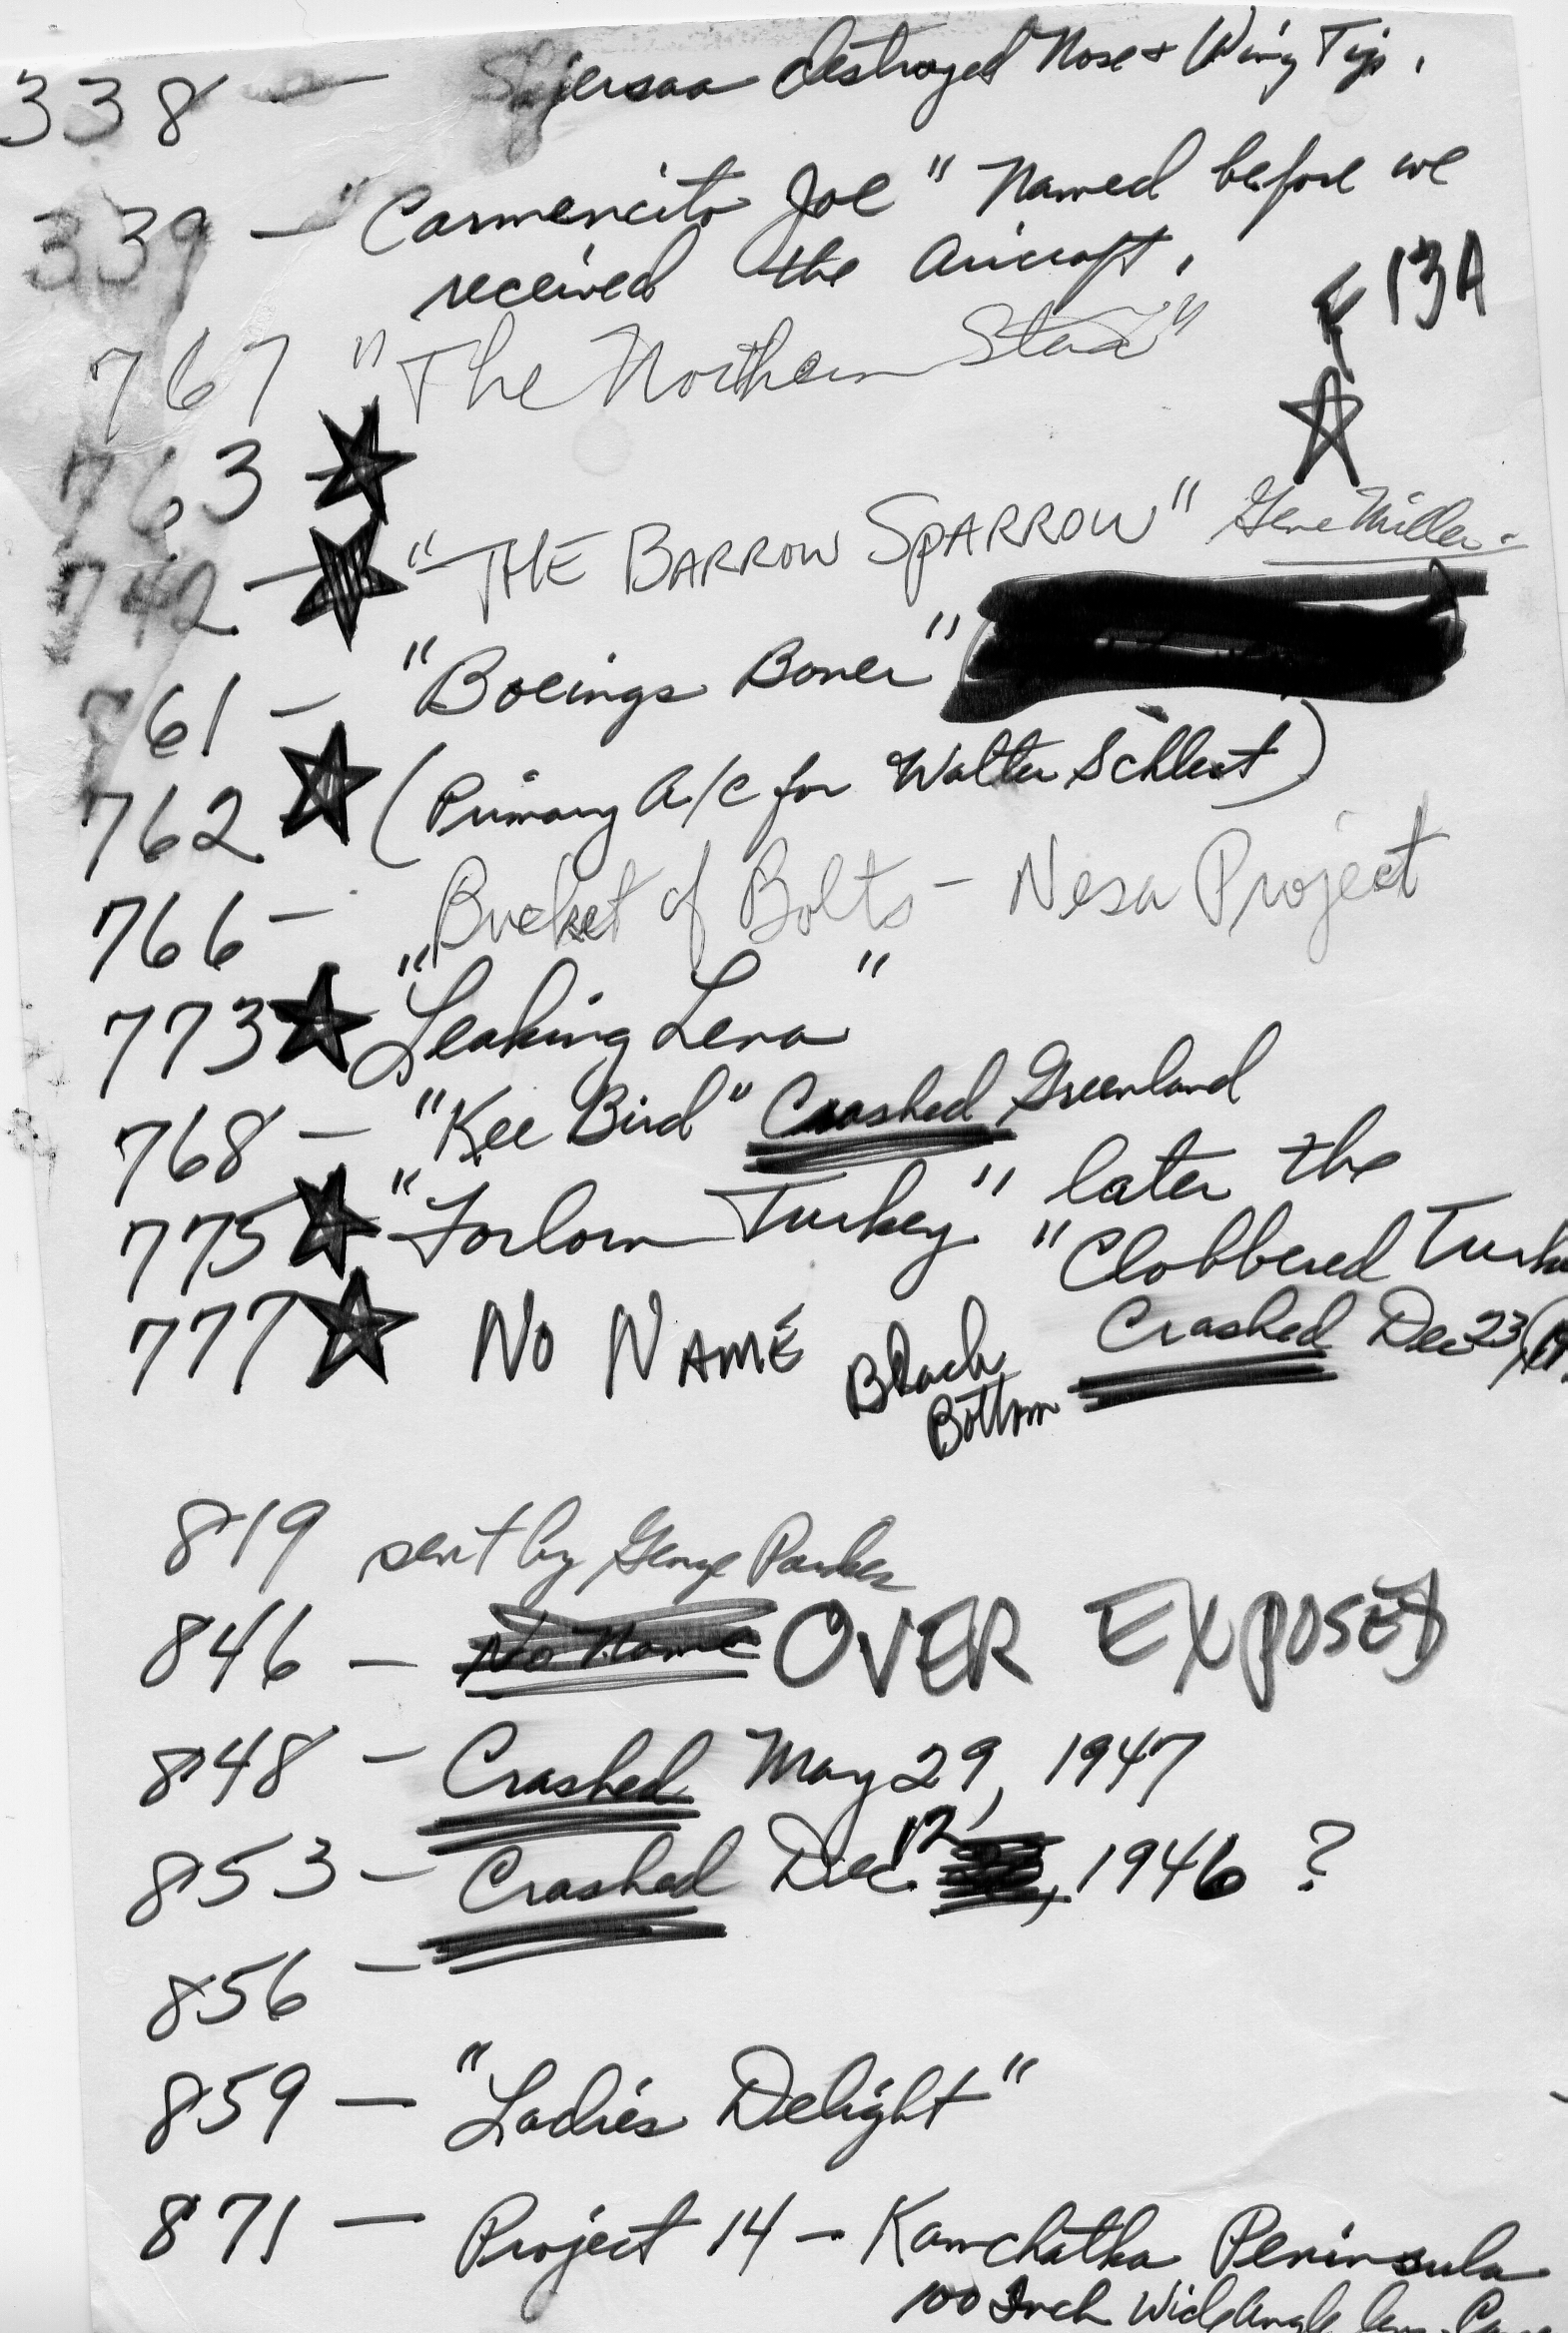 338 — destroyed Nose + Wing Tip.
339 — "Carmencito Joe" Named before we
received the Aircraft.
F 13A
767 "The Northern Star"
763
742 — "THE BARROW SPARROW" Gene Miller
761 — "Boeings Boner"
762 (Primary A/C for Walter Schlest)
766 — Bucket of Bolts — Nesa Project
773 "Leaking Lena"
768 — "Kee Bird" Crashed Greenland
775 "Forlorn Turkey" later the
"Clobbered
777 NO NAME Black Bottom Crashed Dec 23
819 sent by George Parker
846 — No Name OVER EXPOSED
848 — Crashed May 29, 1947
853 — Crashed Dec. 12, 1946 ?
856 —
859 — "Ladies Delight"
871 — Project 14 — Kamchatka Peninsula
100 Inch Wide Angle